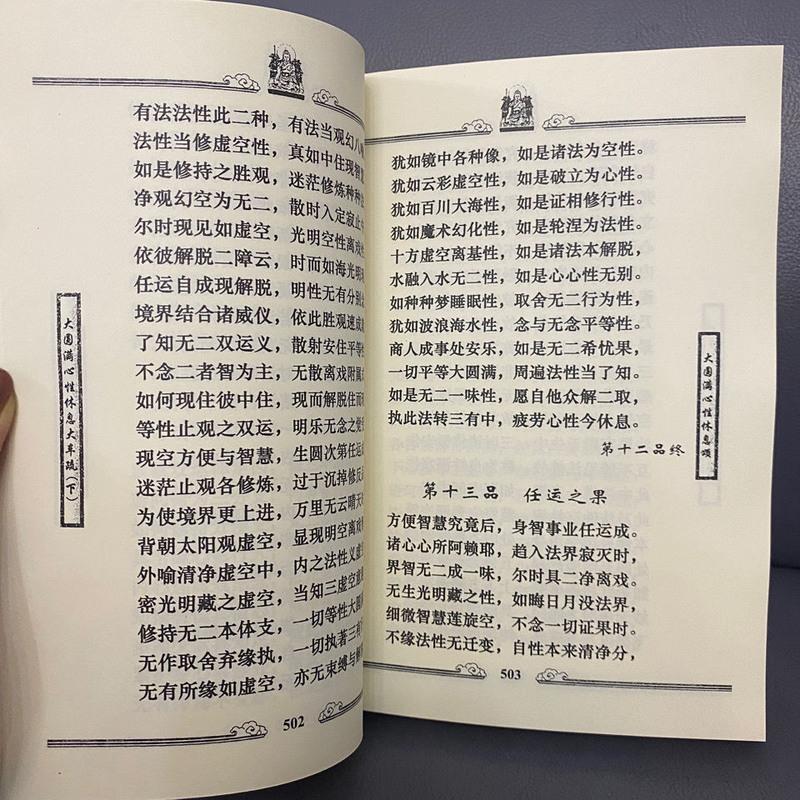 有法法性此二种，有法当观幻八
法性当修虚空性，真如中住现智
如是修持之胜观，迷茫修炼种种
净观幻空为无二，散时入定寂止
尔时现见如虚空，光明空性离戏
依彼解脱二障云，时而如海光明
任运自成现解脱，明性无有分别
境界结合诸威仪，依此胜观速成
了知无二双运义，散射安住平等
不念二者智为主，无散离戏附属
如何现住彼中住，现而解脱住而
等性止观之双运，明乐无念之觉
现空方便与智慧，生圆次第任运
迷茫止观各修炼，过于沉掉修反
为使境界更上进，万里无云晴天
背朝太阳观虚空，显现明空离戏
外喻清净虚空中，内之法性义虚
密光明藏之虚空，当知三虚空
修持无二本体支，一切等性大圆
无作取舍弃缘执，一切执著三有
无有所缘如虚空，亦无束缚与解
大圆满心性休息大车疏（下）
502
犹如镜中各种像，如是诸法为空性。
犹如云彩虚空性，如是破立为心性。
犹如百川大海性，如是证相修行性。
犹如魔术幻化性，如是轮涅为法性。
十方虚空离基性，如是诸法本解脱，
水融入水无二性，如是心心性无别。
如种种梦睡眠性，取舍无二行为性，
犹如波浪海水性，念与无念平等性。
商人成事处安乐，如是无二希忧果，
一切平等大圆满，周遍法性当了知。
如是无二一味性，愿自他众解二取，
执此法转三有中，疲劳心性今休息。
第十二品终
第十三品 任运之果
方便智慧究竟后，身智事业任运成。
诸心心所阿赖耶，趋入法界寂灭时，
界智无二成一味，尔时具二净离戏。
无生光明藏之性，如晦日月没法界，
细微智慧莲旋空，不念一切证果时。
不缘法性无迁变，自性本来清净分，
大圆满心性休息颂
503